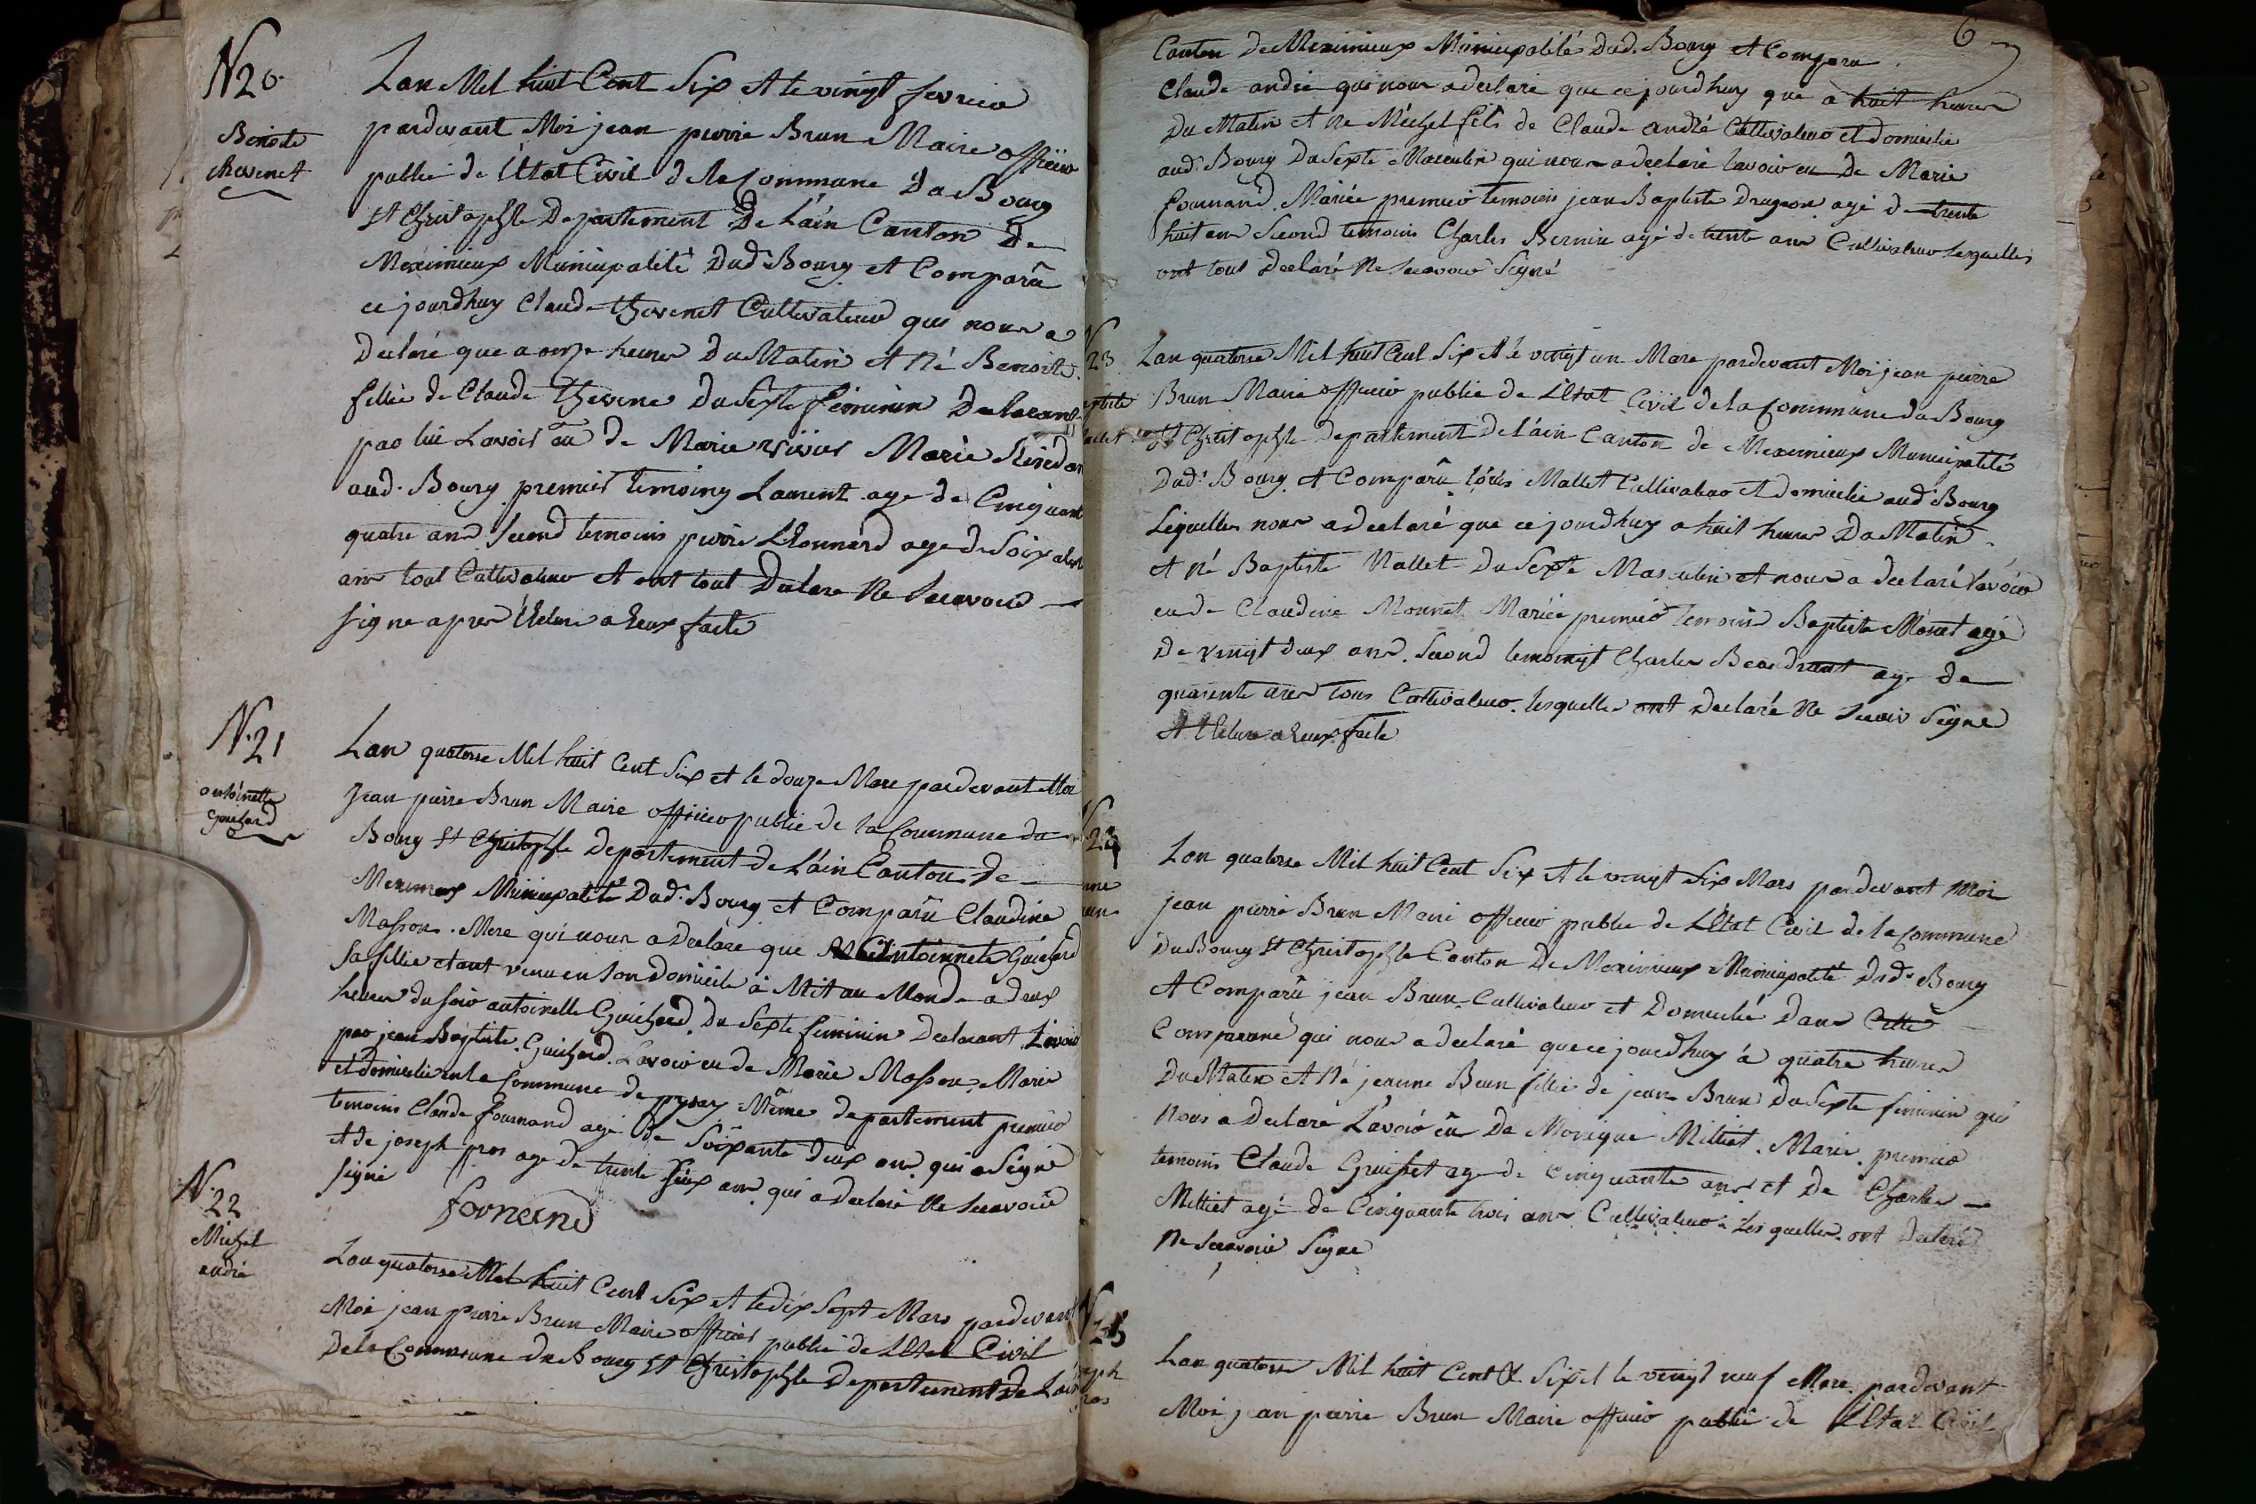 N 20
Benoite
thevenet
Lan Mil huit Cent Six et le vingt fevrier
pardevant Moi jean pierre Brun Maire officier
public de l'Etat Civil de la Commune Du Bourg
St Christophle Departement De L'ain Canton De
Meximieux Municipalité Dud. Bourg et Comparû
ce jourdhuy Claude thevenet Cultivateur qui nous a
Declaré que a onze heures Du Matin et Né Benoite
fillie de Claude thevene Du Sexte feminin Declarant
par lui Lavoir eû de Marie Mariè
aud. Bourg premier temoing Laurent age de Cinquant
quatre ans Second temoins pierre Lhonnard age de Soix
ans tout Cultivateur et ont tout Declare Ne Scavoir
signe apres a Eeux faite
N. 21
antoinette
Guichard
Lan quatorse Mil huit Cent Six et le douze Mars pardevant Moi
Jean pierre Brun Maire officier public de la Commune du
Bourg St Christophle departement de L'ain Canton De
Meximeux Municipalité Dud. Bourg et Comparû Claudine
Masson. Mere qui nous a Declare que Antoinnete Guichard
Sa fillie etant venu en Son domicile à Mit au Monde a deux
heures du Soir antoinette Guichard Du Sexte feminin Declarant Lavoir
par jean Baptiste Guichard. Lavoir eu de Marie Masson. Marie
et domicilie en la Commune de Même departement premier
temoins Claude fournand agé de Soixante deux ans qui a Signé
et de joseph pros age de trente Six ans qui a Declaré Ne Scavoir
signé
fornand
N. 22
Michel
andré
Lan quatorse Mil huit Cent Six et le dix Sept Mars pardevant
Moi jean pierre Brun Maire officier public de L'Etat Civil
De la Commune du Bourg St Christophle Departement De Lain
6
Canton De Meximieux Municipalité Dud. Bourg et Comparu
Claude andré qui nous a declaré que ce jourdhuy que a huit heures
Du Matin et Ne Méchel fils de Claude andré Cultivateur et domicilie
aud. Bourg Du Sexte Masculin qui nous a declaré lavoir eu De Marie
fournand. Mariée premier temoins jean Baptiste Drugeon agé de trente
huit ans Second temoins Charles Bernin agé de trente ans Cultivateur Lesquelles
ont tout Declaré Ne Scavoir Signé
N 23
Lan quatorse Mil huit Cent Six et le vingt un Mars pardevant Moi jean pierre
Brun Maire officier public de L'Etat Civil de la Commune du Bourg
St Christophle Departement de L'ain Canton de Meximieux Municipalité
Dud. Bourg et Comparû Louis Mallet Cultivateur et domicilie aud. Bourg
Lequelles nous a declaré que ce jourdhuy a huit heures Du Matin
et né Baptiste Mallet Du Sexte Masculin et nous a declaré Lavoir
eu de Claudine Mounet Mariée premier temoins Baptiste Mónet agé
De vingt deux ans. Second temoingt Charles Beaudrant age de
quarente ans tous Cultivateur. lesquelles ont Declaré Ne Scavoir Signe
a Eeux faite
N 24
Lan quatorse Mil huit Cent Six et le vingt Six Mars pardevant Moi
jean pierre Brun Maire officier public de L'Etat Civil de la Commune
Du Bourg St Christophle Canton De Meximieux Municipalité Dud. Bourg
et Comparû jean Brun Cultivateur et Domicilié Dans Cette
Commune qui nous a declaré que ce jourdhuy à quatre heures
Du Matin et Né jeanne Brun fillie de jean Brun Du Sexte feminin qui
Nous a Declaré L'avoir eu De Monique Milliet. Marie. premier
temoins Claude Gruiffet age de Cinquante ans et De Charles
Milliet agé de Cinquante trois ans Cultivateur Les quelles ont Declaré
Ne Scavoir Signe
N 25
Lan quatorse Mil huit Cent Six et le vingt neuf Mars pardevant
Moi jean pierre Brun Maire officier public de L'Etat Civil